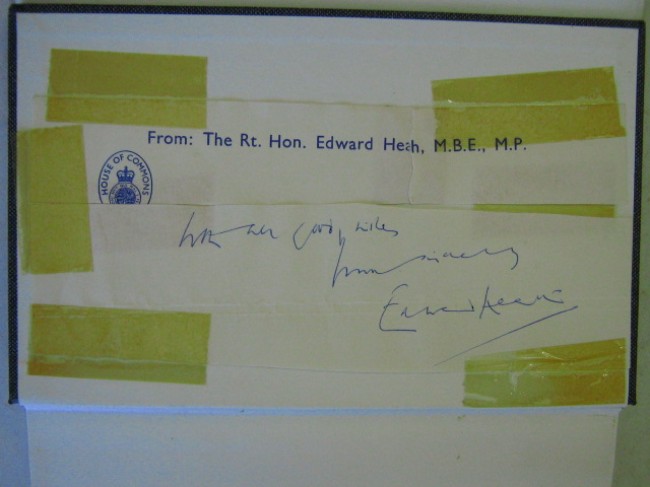 From: The Rt. Hon. Edward Heath, M.B.E., M.P.
HOUSE OF COMMONS
With all good wishes
Yours sincerely
Edward Heath